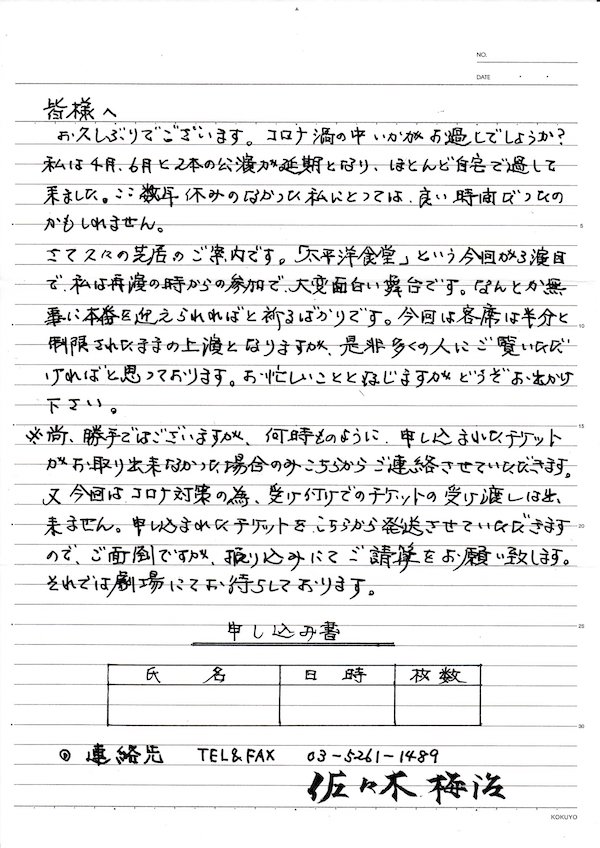 NO.
DATE ・ ・
皆様へ
お久しぶりでございます。コロナ渦の中いかがお過しでしようか?
私は4月、6月と2本の公演が延期となり、ほとんど自宅で過して
来ました。ここ数年休みのなかった私にとっては、良い時間だったの
かもしれません。
さて久々の芝居のご案内です。「太平洋食堂」という今回が3演目
で、私は再演の時からの参加で、大変面白い舞台です。なんとか無
事に本番を迎えられればと祈るばかりです。今回は客席は半分と
制限されたままの上演となりますが、是非多くの人にご覧いただ
ければと思っております。お忙しいこととなじますがどうぞお出かけ
下さい。
※尚、勝手ではございますが、何時ものように、申し込まれたチケット
がお取り出来なかった場合のみこちらからご連絡させていただきます。
又今回はコロナ対策の為、受け付けでのチケットの受け渡しは出
来ません。申し込まれたチケットを、こちらから発送させていただきます
ので、ご面倒ですが、振り込みにてご請算をお願い致します。
それでは劇場にてお待ちしております。
申し込み書
氏 名 日 時 枚数
連絡先 TEL&FAX 03-5261-1489
佐々木梅治
5
10
15
20
25
30
KOKUYO